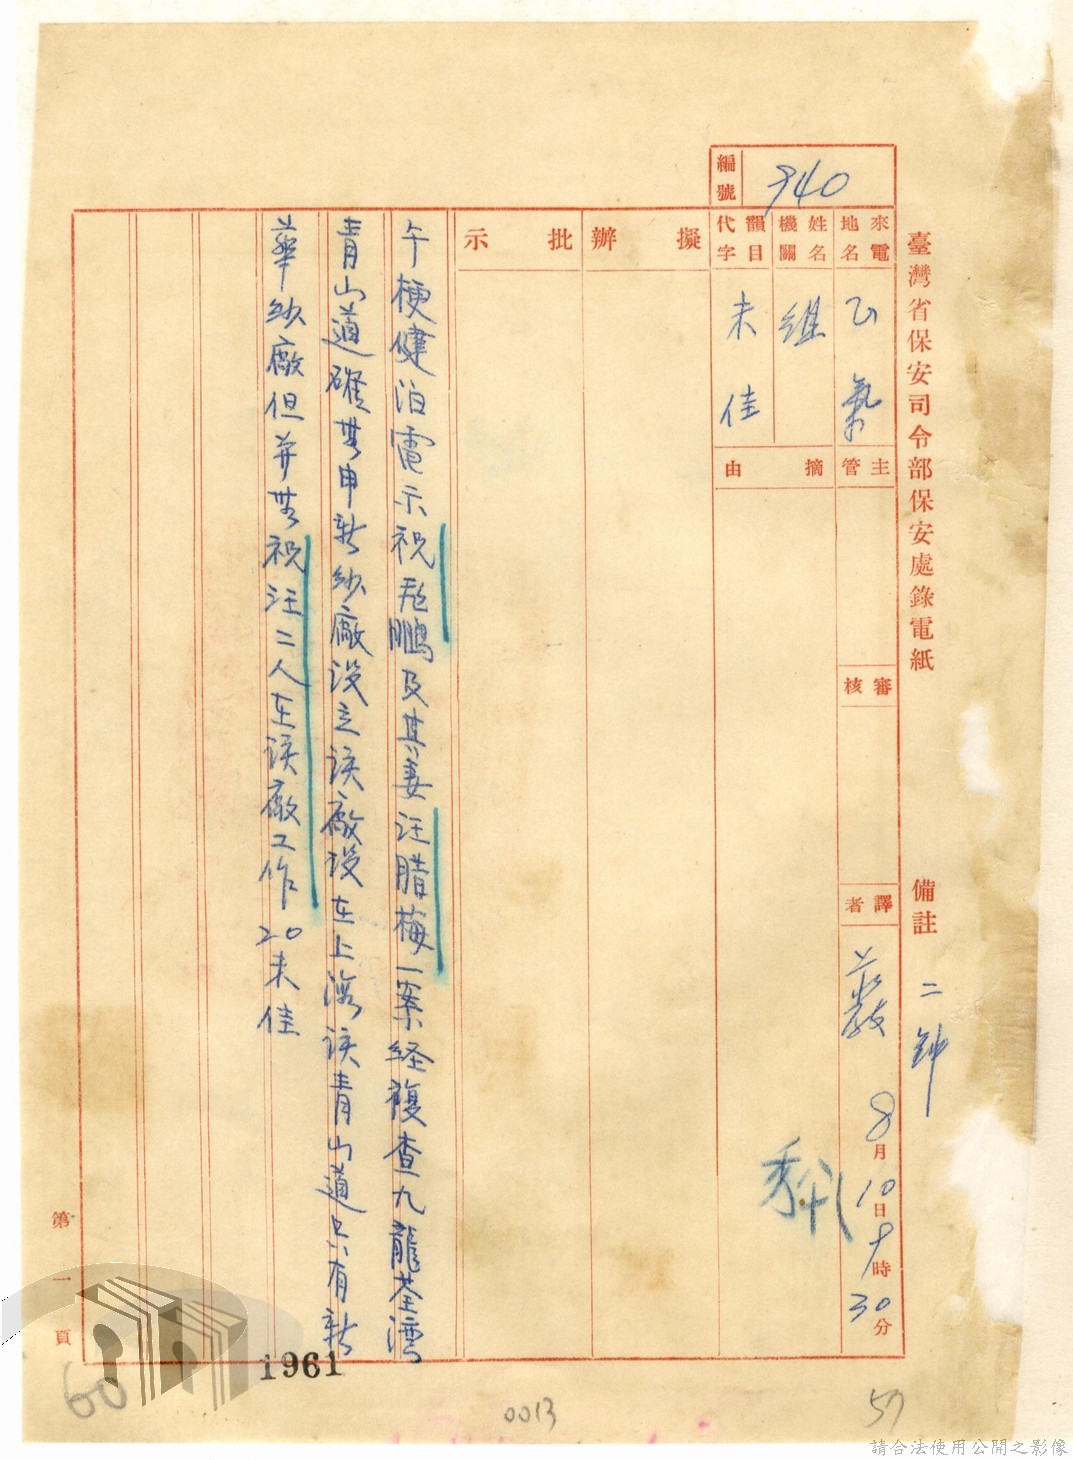 臺灣省保安司令部保安處錄電紙
備註 二鈡
編號 940
來電地名
姓名機關
韻目代字
擬辦
批示
乙氣
继
未佳
主管
摘由
審核
譯者
8月10日9時30分
午梗健泊電示祝彪鵬及其妻汪腊梅一案经複查九龍荃湾
青山道確無申新纱廠设立该廠设在上海该青山道只有新
華纱廠但并無祝汪二人在该廠工作20未佳
第一頁
1961
60
0013
57
請合法使用公開之影像